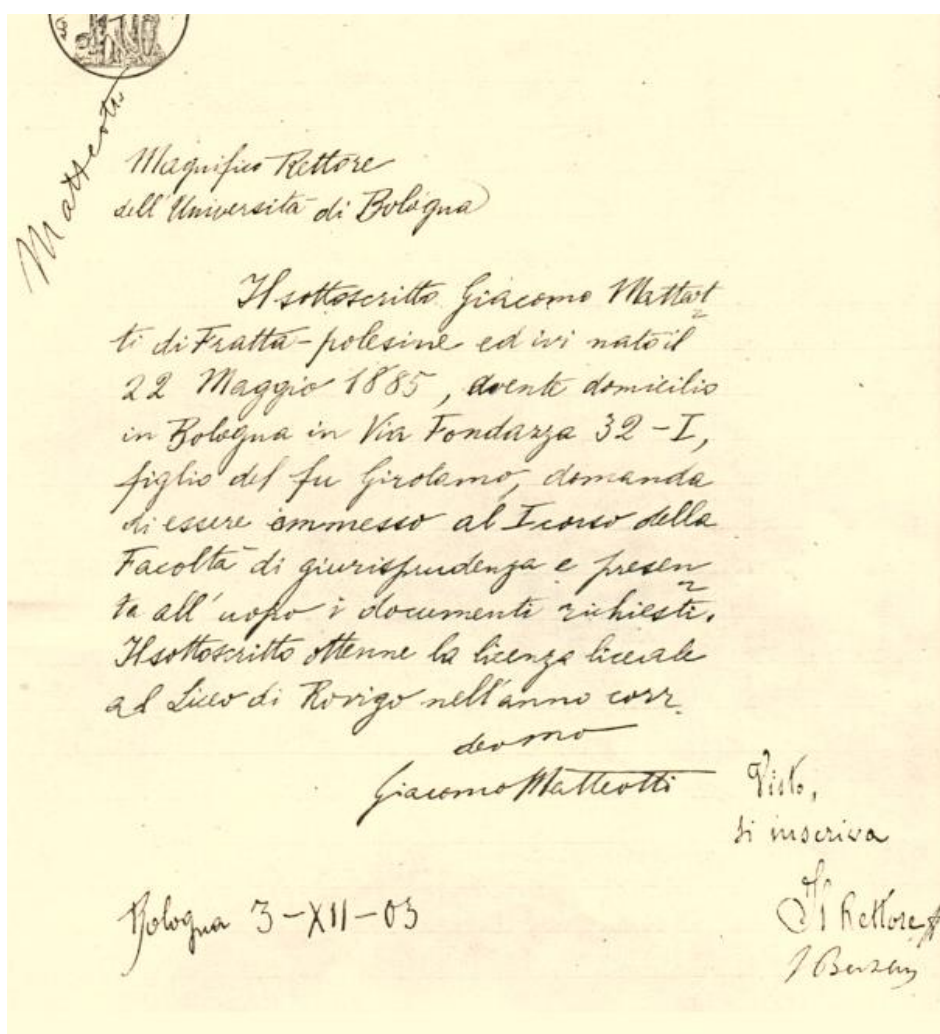 Matteotti
Magnifico Rettore
dell'Università di Bologna
Il sottoscritto Giacomo Matteot
ti di Fratta-polesine ed ivi nato il
22 Maggio 1885, avente domicilio
in Bologna in Via Fondazza 32-I,
figlio del fu Girolamo, domanda
di essere immesso al I corso della
Facoltà di giurisprudenza e presen
ta all'uopo i documenti richiesti.
Il sottoscritto ottenne la licenza liceale
al Liceo di Rovigo nell'anno corr.
devmo
Giacomo Matteotti
Visto,
si inscriva
Il Rettore
Bologna 3-XII-03